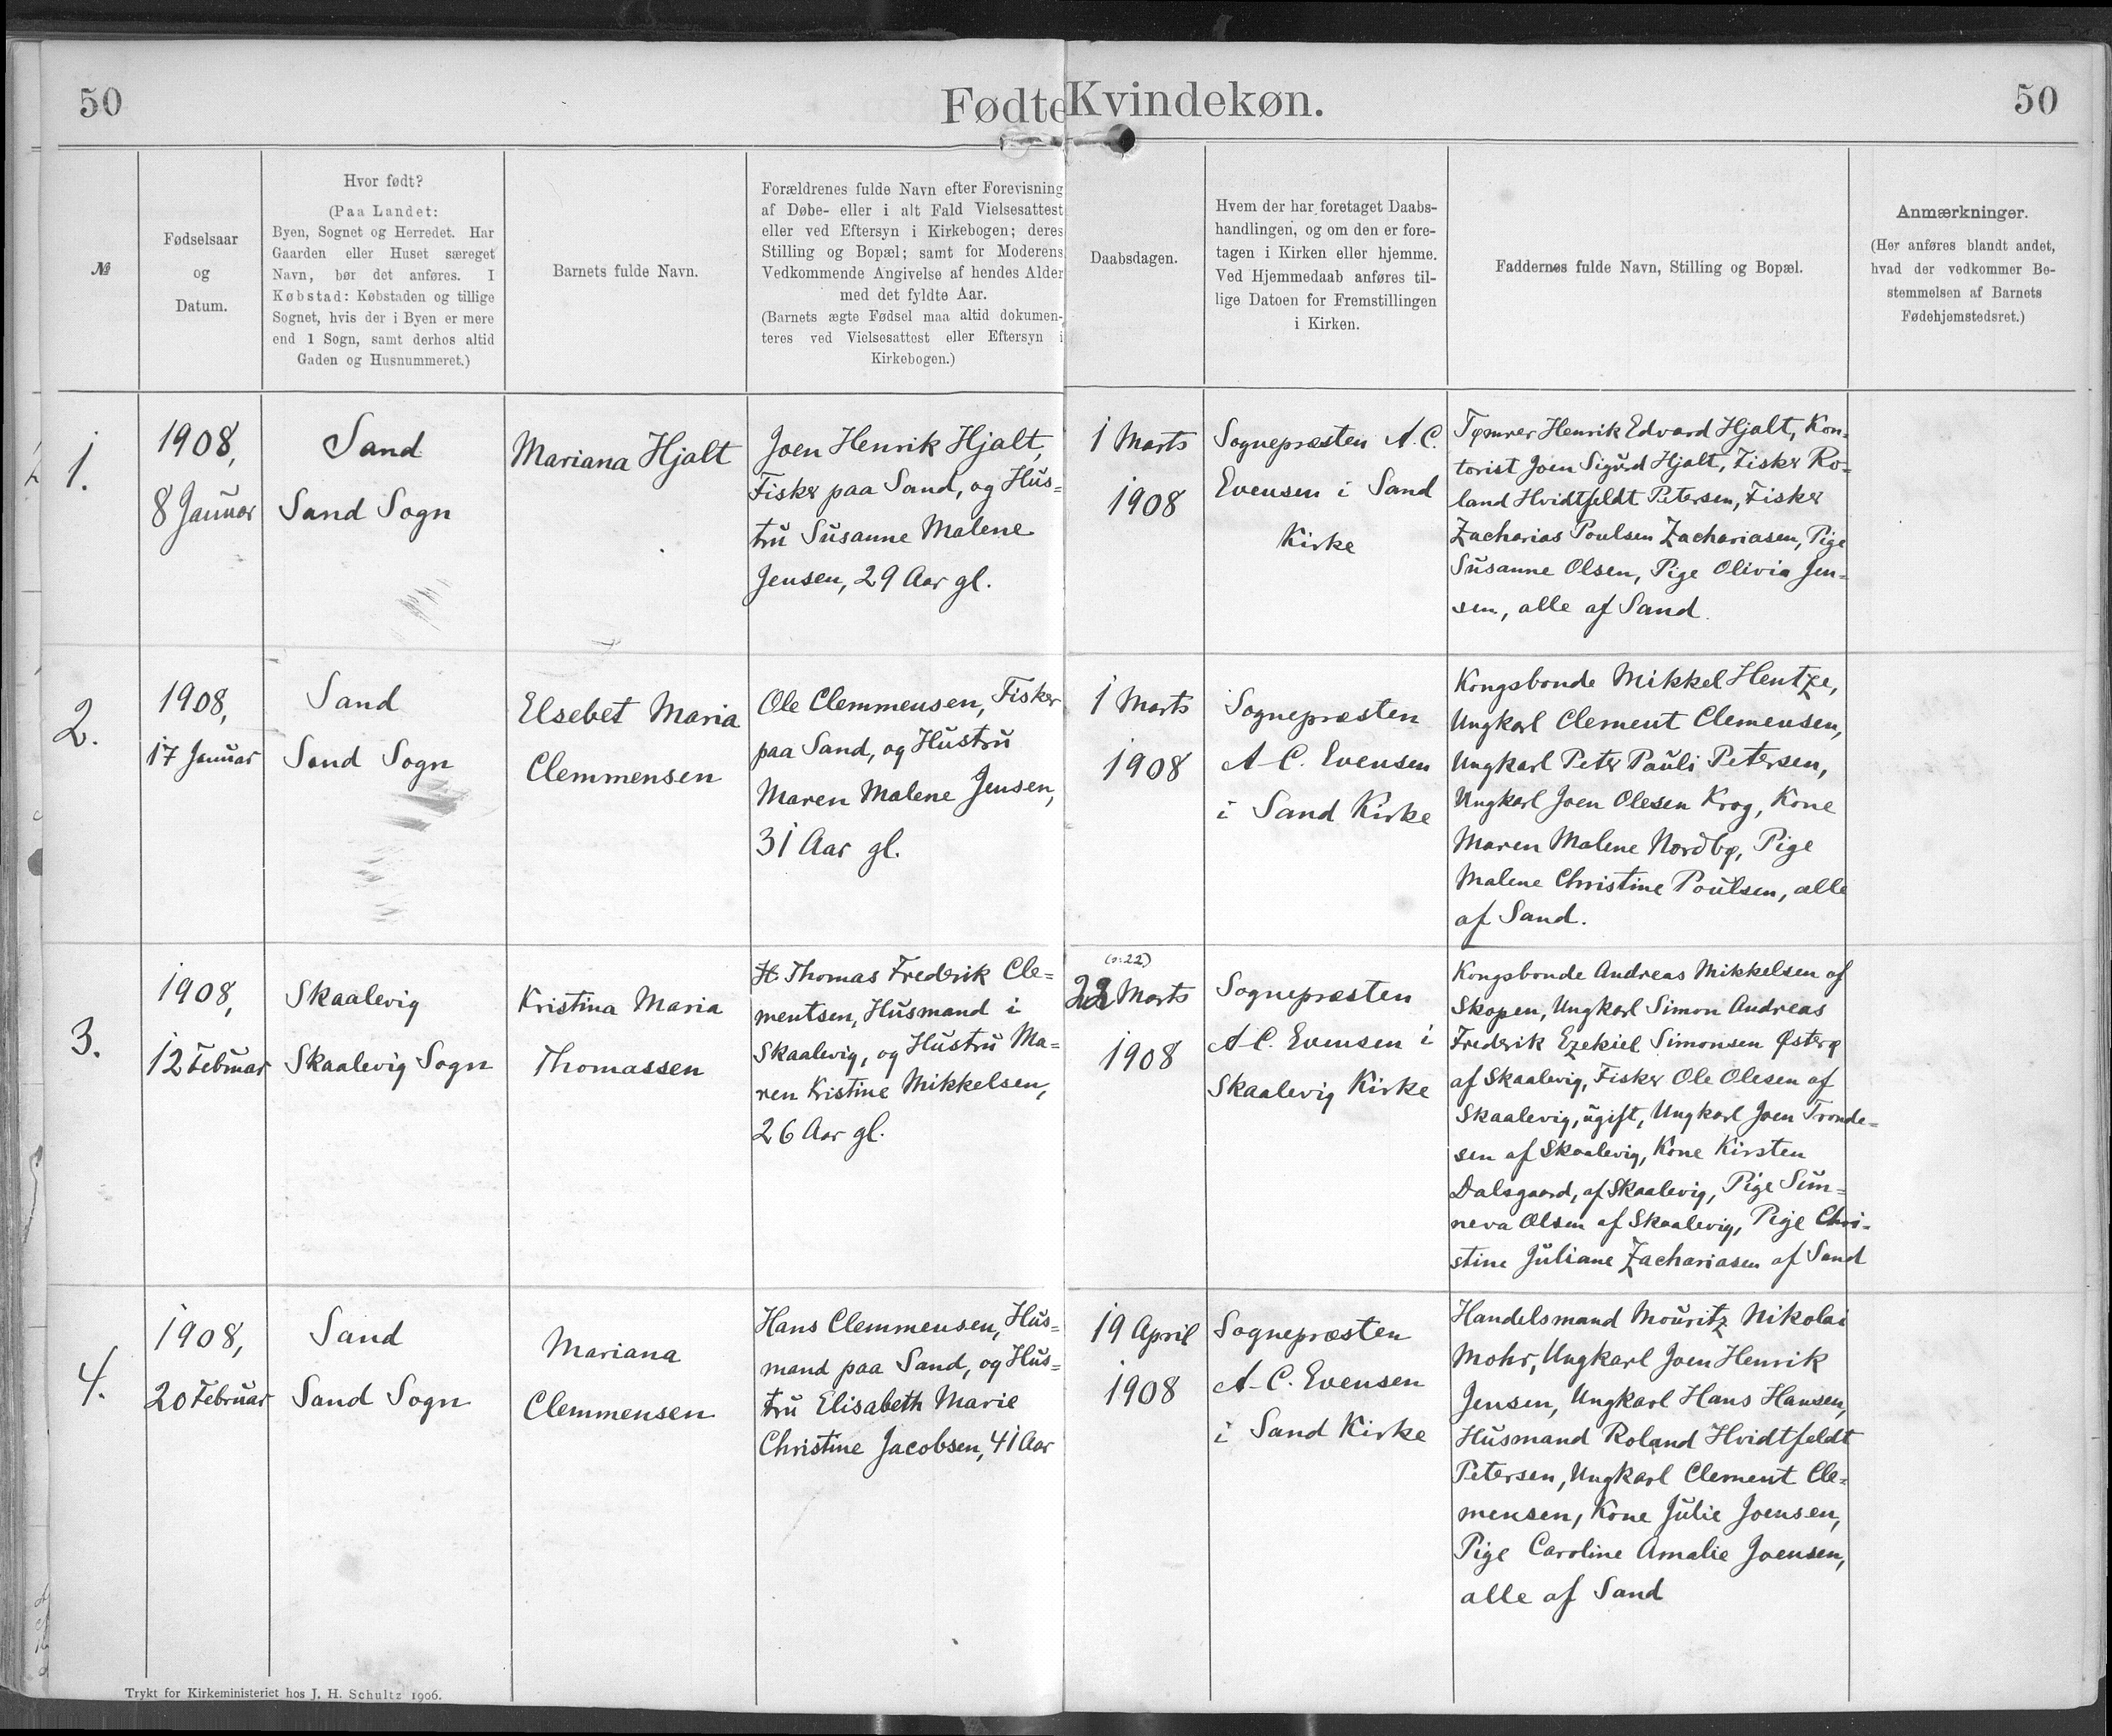 50
Fødte Kvindekøn.
50
№
Fødselsaar
og
Datum.
Hvor født?
(Paa Landet:
Byen, Sognet og Herredet. Har
Gaarden eller Huset særeget
Navn, bør det anføres. I
Købstad: Købstaden og tillige
Sognet, hvis der i Byen er mere
end 1 Sogn, samt derhos altid
Gaden og Husnummeret.)
Barnets fulde Navn.
Forældrenes fulde Navn efter Forevisning
af Døbe- eller i alt Fald Vielsesattest
eller ved Eftersyn i Kirkebogen; deres
Stilling og Bopæl; samt for Moderens
Vedkommende Angivelse af hendes Alder
med det fyldte Aar.
(Barnets ægte Fødsel maa altid dokumen-
teres ved Vielsesattest eller Eftersyn i
Kirkebogen.)
Daabsdagen.
Hvem der har foretaget Daabs-
handlingen, og om den er fore-
tagen i Kirken eller hjemme.
Ved Hjemmedaab anføres til-
lige Datoen for Fremstillingen
i Kirken.
Faddernes fulde Navn, Stilling og Bopæl.
Anmærkninger.
(Her anføres blandt andet,
hvad der vedkommer Be-
stemmelsen af Barnets
Fødehjemstedsret.)
1.
1908,
8 Januar
Sand
Sand Sogn
Mariana Hjalt
Joen Henrik Hjalt,
Fisker paa Sand, og Hus=
tru Susanne Malene
Jensen, 29 Aar gl.
1 Marts
1908
Sognepræsten A. C.
Evensen i Sand
Kirke
Tømrer Henrik Edvard Hjalt, Kon-
torist Joen Sigurd Hjalt, Fisker Ro=
land Hvidtfeldt Petersen, Fisker
Zacharias Poulsen Zachariasen, Pige
Susanne Olsen, Pige Olivia Jen=
sen, alle af Sand.
2.
1908,
17 Januar
Sand
Sand Sogn
Elsebet Maria
Clemmensen
Ole Clemmensen, Fisker
paa Sand, og Hustru
Maren Malene Jensen,
31 Aar gl.
1 Marts
1908
Sognepræsten
A. C. Evensen
i Sand Kirke
Kongsbonde Mikkel Hentze,
Ungkarl Clement Clemensen,
Ungkarl Peter Pauli Petersen,
Ungkarl Joen Olesen Krog, Kone
Maren Malene Nordbø, Pige
Malene Christine Poulsen, alle
af Sand.
3.
1908,
12 Februar
Skaalevig
Skaalevig Sogn
Kristina Maria
Thomassen
H. Thomas Frederik Cle=
mentsen, Husmand i
Skaalevig, og Hustru Ma=
ren Kristine Mikkelsen,
26 Aar gl.
(o: 22)
22 Marts
1908
Sognepræsten
A. C. Evensen i
Skaalevig Kirke
Kongsbonde Andreas Mikkelsen af
Skopen, Ungkarl Simon Andreas
Frederik Ezekiel Simonsen Østerø
af Skaalevig, Fisker Ole Olesen af
Skaalevig, ugift, Ungkarl Joen Tronde=
sen af Skaalevig, Kone Kirsten
Dalsgaard, af Skaalevig, Pige Sun=
neva Olsen af Skaalevig, Pige Chri-
stine Juliane Zachariasen af Sand
4.
1908,
20 Februar
Sand
Sand Sogn
Mariana
Clemmensen
Hans Clemmensen, Hus=
mand paa Sand, og Hus=
tru Elisabeth Marie
Christine Jacobsen, 41 Aar
19 April
1908
Sognepræsten
A. C. Evensen
i Sand Kirke
Handelsmand Mouritz Nikolai
Mohr, Ungkarl Joen Henrik
Jensen, Ungkarl Hans Hansen,
Husmand Roland Hvidtfeldt
Petersen, Ungkarl Clement Cle=
mensen, Kone Julie Joensen,
Pige Caroline Amalie Joensen,
alle af Sand
Trykt for Kirkeministeriet hos J. H. Schultz 1906.